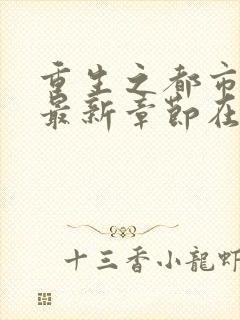 重生之都市
最新章節在
十三香小龍蝦